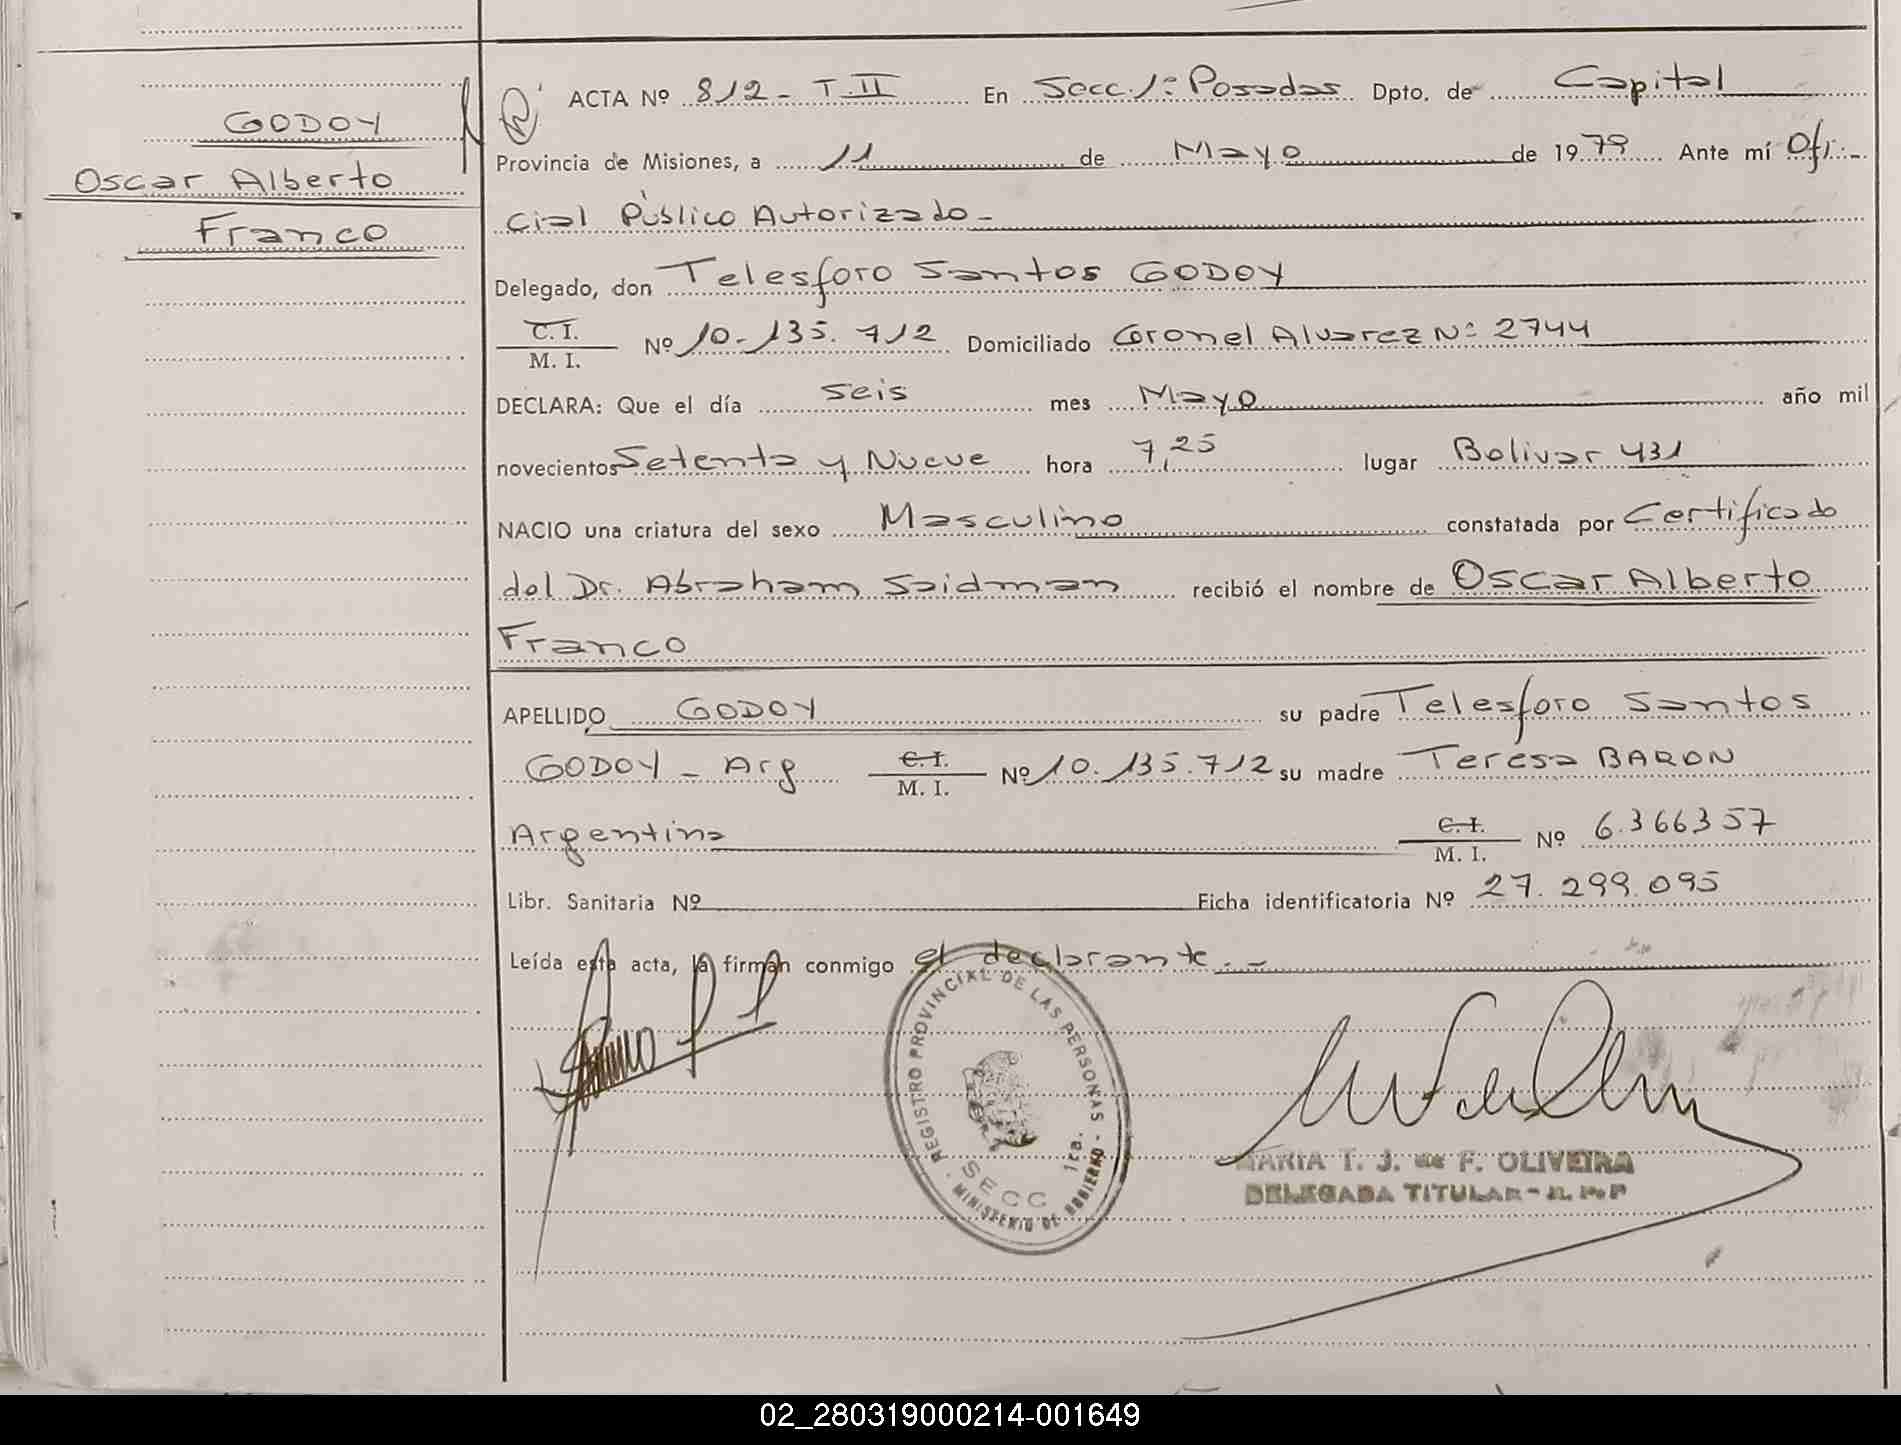 GODOY
Oscar Alberto
Franco
ACTA Nº 812 - T. II En Secc. 1ª Posadas Dpto. de Capital
Provincia de Misiones, a 11 de Mayo de 1979 Ante mí Ofi-
cial Público Autorizado -
Delegado, don Telesforo Santos GODOY
C. I.
M. I. Nº 10.135.712 Domiciliado Coronel Alvarez Nº 2744
DECLARA: Que el día seis mes Mayo año mil
novecientos Setenta y Nueve hora 7,25 lugar Bolivar 431
NACIO una criatura del sexo Masculino constatada por Certificado
del Dr. Abraham Saidman recibió el nombre de Oscar Alberto
Franco
APELLIDO GODOY su padre Telesforo Santos
GODOY - Arg C. I. M. I. Nº 10.135.712 su madre Teresa BARON
Argentina C. I. M. I. Nº 6.366357
Libr. Sanitaria Nº Ficha identificatoria Nº 27.299.095
Leída esta acta, la firman conmigo el declarante. -
REGISTRO PROVINCIAL DE LAS PERSONAS - 1ra.
SECC
MINISTERIO DE GOBIERNO
MARIA T. J. de F. OLIVEIRA
DELEGADA TITULAR - R. P. P
02_280319000214-001649